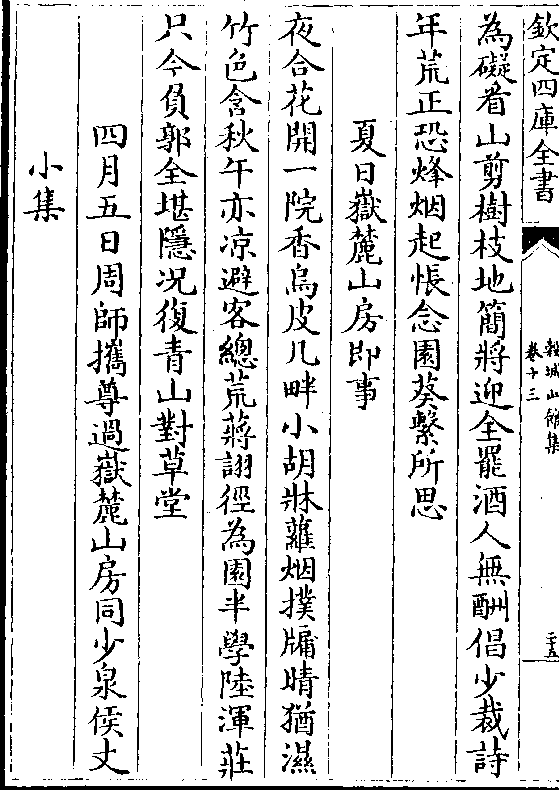 欽定四庫全書
穀城山館集
卷十三
二十五
為礙看山剪樹枝地簡將迎全罷酒人無酬倡少裁詩
年荒正恐烽烟起悵念園葵繫所思
夏日嶽麓山房即事
夜合花開一院香烏皮几畔小胡牀蘿烟撲牖晴猶濕
竹色含秋午亦凉避客總荒蔣詡徑為園半學陸渾莊
只今負郭全堪隱況復青山對草堂
四月五日周師攜尊過嶽麓山房同少泉侯丈
小集